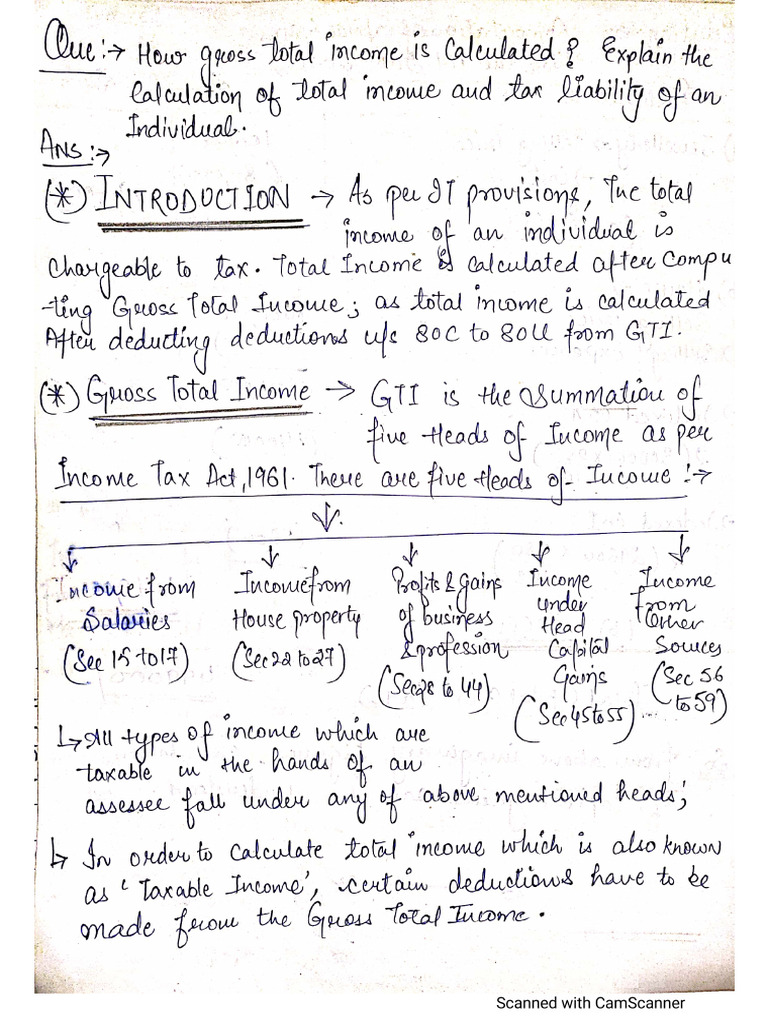 Que:→ How gross total income is Calculated? Explain the
Calculation of total income and tax liability of an
Individual.
Ans:→
(*) INTRODUCTION → As per IT provisions, The total
income of an individual is
Chargeable to tax. Total Income is calculated after Compu
-ting Gross Total Income; as total income is calculated
After deducting deductions u/s 80C to 80U from GTI.
(*) Gross Total Income → GTI is the Summation of
five Heads of Income as per
Income Tax Act, 1961. There are five Heads of Income :→
Income from Salaries (Sec 15 to 17)
Income from House property (Sec 22 to 27)
Profits & Gains of business & profession (Sec 28 to 44)
Income under Head Capital Gains (Sec 45 to 55)
Income from Other Sources (Sec 56 to 59)
↳ All types of income which are
taxable in the hands of an
assessee fall under any of above mentioned heads;
↳ In order to calculate total income which is also known
as 'Taxable Income', certain deductions have to be
made from the Gross Total Income.
Scanned with CamScanner